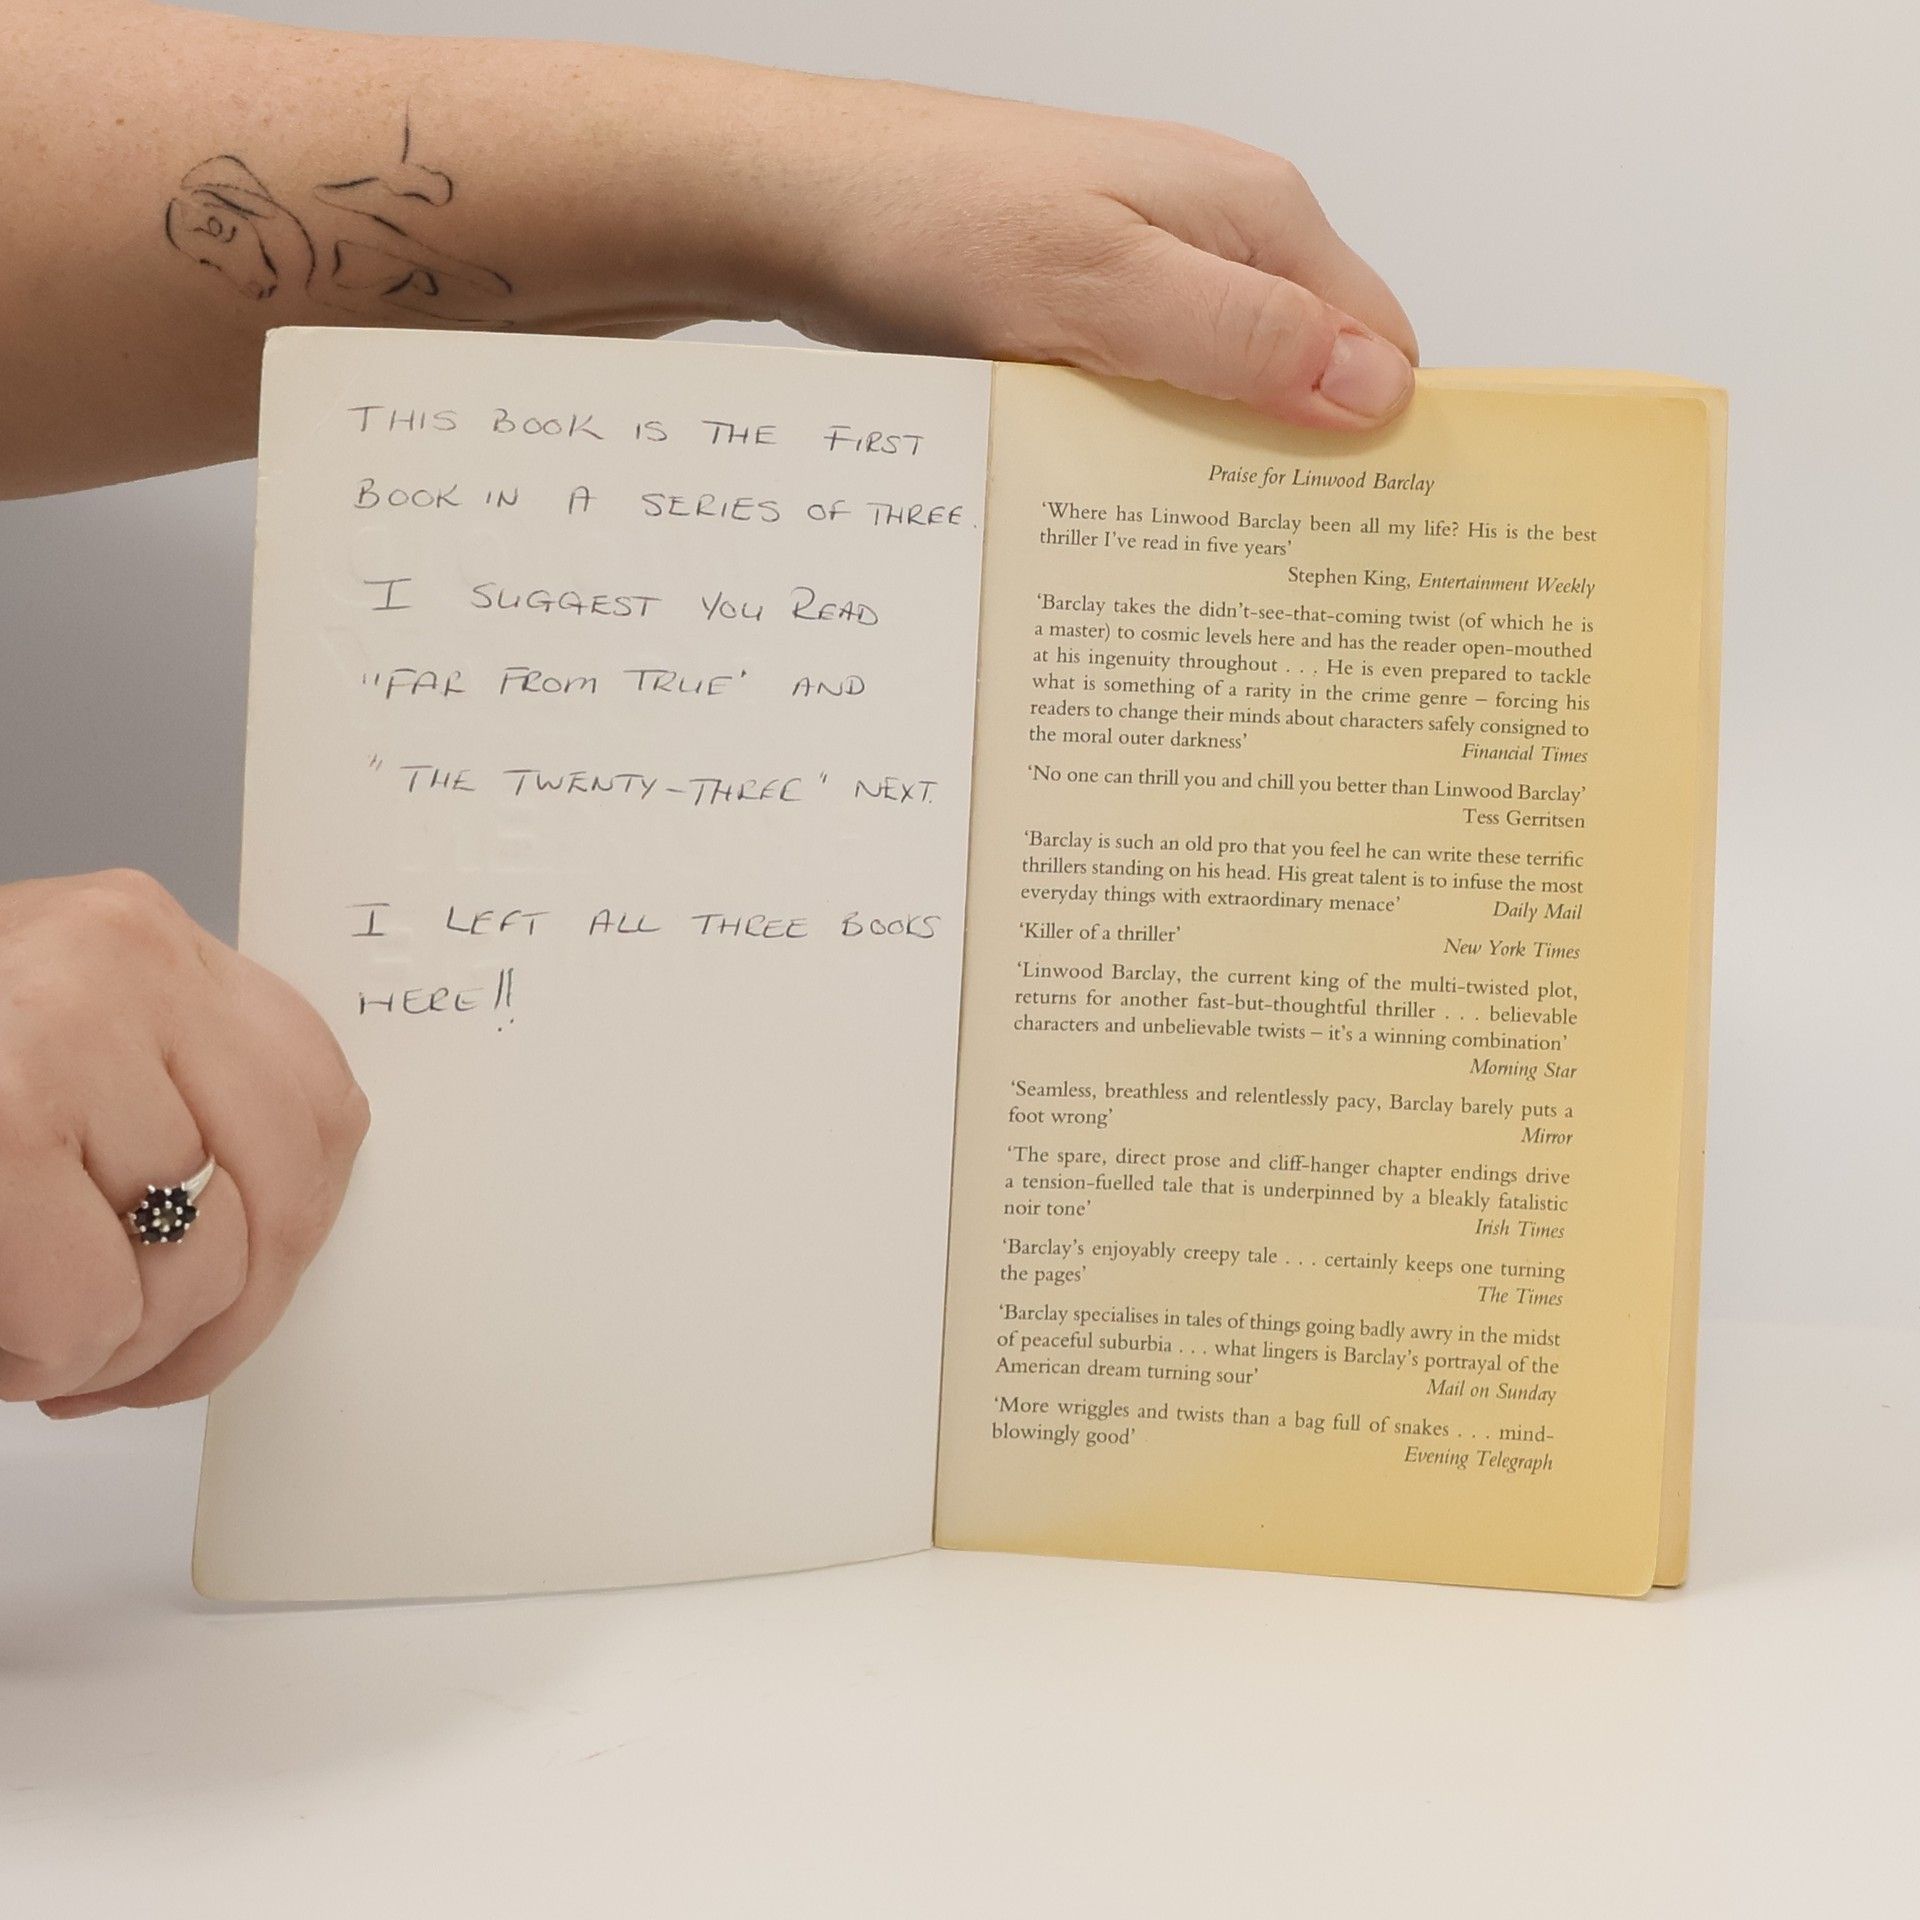 THIS BOOK IS THE FIRST
BOOK IN A SERIES OF THREE.
I SUGGEST YOU READ
"FAR FROM TRUE' AND
"THE TWENTY-THREE" NEXT.
I LEFT ALL THREE BOOKS
HERE!!
Praise for Linwood Barclay
‘Where has Linwood Barclay been all my life? His is the best
thriller I’ve read in five years’
Stephen King, Entertainment Weekly
‘Barclay takes the didn’t-see-that-coming twist (of which he is
a master) to cosmic levels here and has the reader open-mouthed
at his ingenuity throughout . . . He is even prepared to tackle
what is something of a rarity in the crime genre – forcing his
readers to change their minds about characters safely consigned to
the moral outer darkness’ Financial Times
‘No one can thrill you and chill you better than Linwood Barclay’
Tess Gerritsen
‘Barclay is such an old pro that you feel he can write these terrific
thrillers standing on his head. His great talent is to infuse the most
everyday things with extraordinary menace’ Daily Mail
‘Killer of a thriller’ New York Times
‘Linwood Barclay, the current king of the multi-twisted plot,
returns for another fast-but-thoughtful thriller . . . believable
characters and unbelievable twists – it’s a winning combination’
Morning Star
‘Seamless, breathless and relentlessly pacy, Barclay barely puts a
foot wrong’ Mirror
‘The spare, direct prose and cliff-hanger chapter endings drive
a tension-fuelled tale that is underpinned by a bleakly fatalistic
noir tone’ Irish Times
‘Barclay’s enjoyably creepy tale . . . certainly keeps one turning
the pages’ The Times
‘Barclay specialises in tales of things going badly awry in the midst
of peaceful suburbia . . . what lingers is Barclay’s portrayal of the
American dream turning sour’ Mail on Sunday
‘More wriggles and twists than a bag full of snakes . . . mind-
blowingly good’ Evening Telegraph